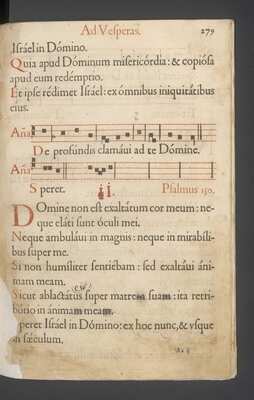 Ad Vesperas. 279
Israél in Dómino.
Quia apud Dóminum misericórdia: & copiósa
apud eum redémptio.
Et ipse rédimet Israél: ex ómnibus iniquitátibus
eius.
Aña
De profúndis clamáui ad te Dómine.
Aña
Speret. Psalmus 130.
DOmine non est exaltátum cor meum: ne-
que eláti sunt óculi mei.
Neque ambuláui in magnis: neque in mirabíli-
bus super me.
Si non humíliter sentiébam: sed exaltáui áni-
mam meam.
Sicut ablactátus super matrem suam: ita retri-
bútio in ánimam meam.
peret Israél in Dómino: ex hoc nunc, & vsque
in sæculum.